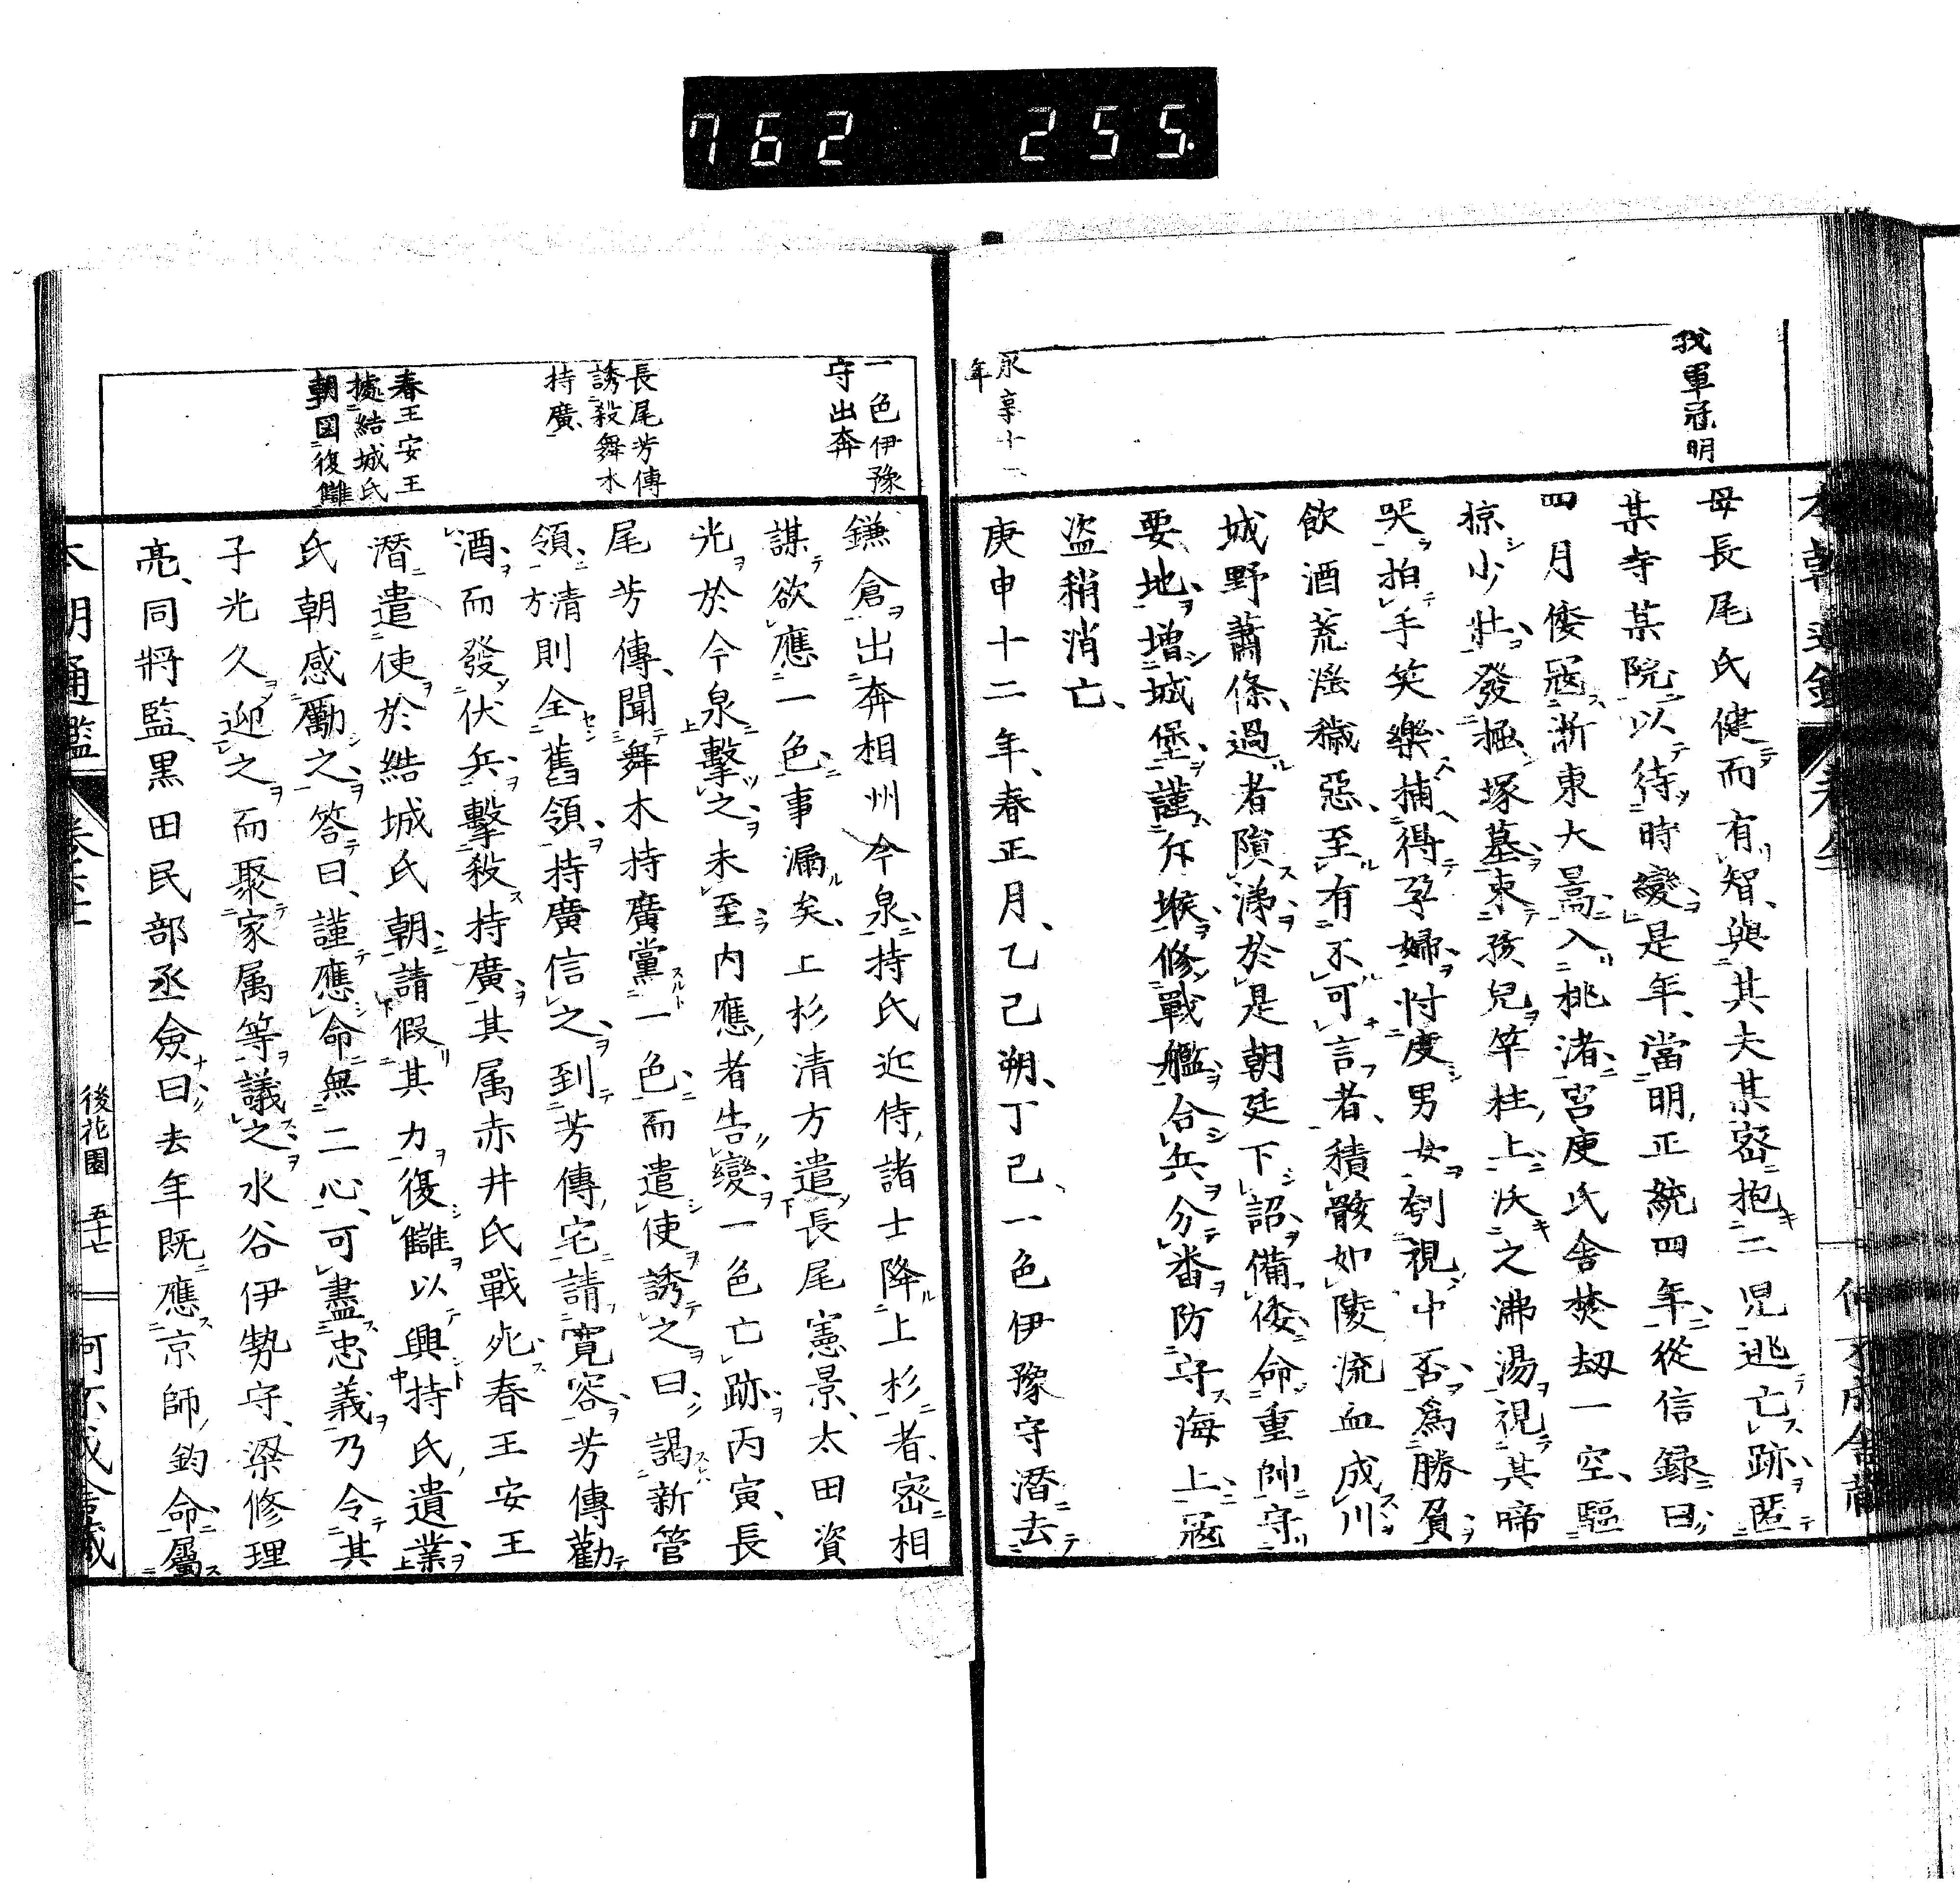 762 255.
我軍冦明
母長尾氏健而有智與其夫某密抱二児逃亡跡匿
某寺某院以待時變是年當明正統四年從信録曰
四月倭寇浙東大嵩入桃渚官庾民舍焚劫一空驅
掠小壯發掘塚墓束孩兒竿柱上沃之沸湯視其啼
哭拍手笑樂捕得孕婦忖度男女刳視中否為勝負
飲酒荒滛穢惡至有不可言者積骸如陵流血成川
城野蕭條過者隕涕於是朝廷下詔備倭命重帥守
要地增城堡謹斥堠修戰艦合兵分番防守海上冦
盜稍消亡
永享十二年
庚申十二年春正月乙己朔丁己一色伊豫守潜去
一色伊豫守出奔
鎌倉出奔相州今泉持氏近侍諸士降上杉者密相
謀欲應一色事漏矣上杉清方遣長尾憲景太田資
光於今泉擊之未至内應者告變一色亡跡丙寅長
長尾芳傳誘殺舞木持廣
尾芳傳聞舞木持廣黨一色而遣使誘之曰謁新管
領清方則全舊領持廣信之到芳傳宅請寛容芳傳勸
酒而發伏兵擊殺持廣其属赤井氏戰死春王安王
春王安王據結城氏朝図復讎
潜遣使於結城氏朝請假其力復讎以興持氏遺業
氏朝感勵之答曰謹應命無二心可盡忠義乃令其
子光久迎之而聚家属等議之水谷伊勢守梁修理
亮同將監黒田民部丞僉曰去年既應京師鈞命屬
本朝通鑑 後花園 五十七